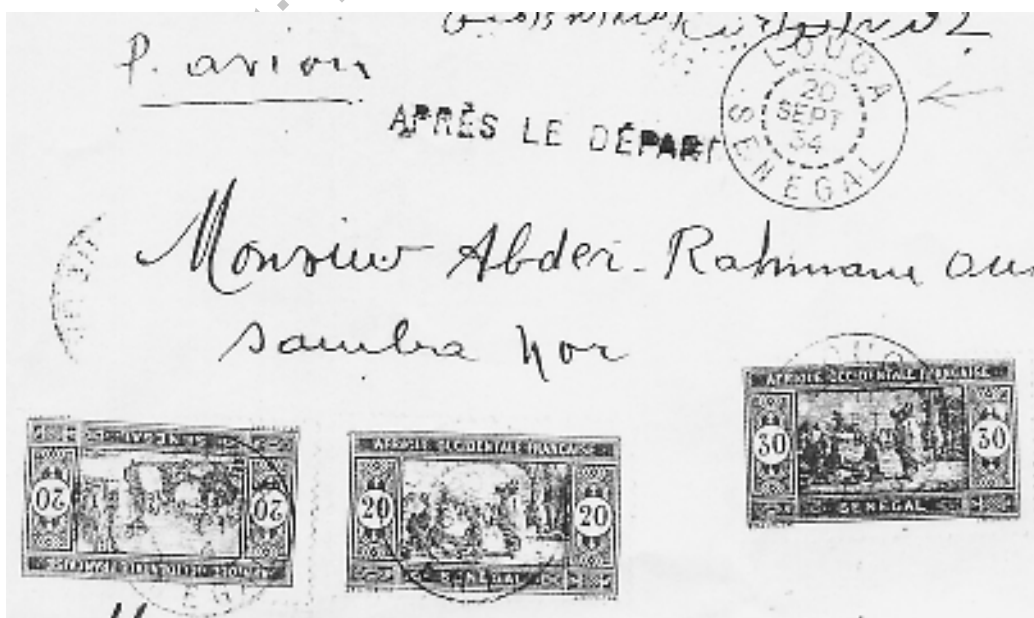 P. avion
APRÈS LE DÉPART
LOUGA
20
SEPT
34
SENEGAL
Monsieur Abder-Rahmane
Samba Nor
AFRIQUE OCCIDENTALE FRANÇAISE
30 30
SENEGAL
SENEGAL
20 20
AFRIQUE OCCIDENTALE FRANÇAISE
AFRIQUE OCCIDENTALE FRANÇAISE
20 20
SENEGAL